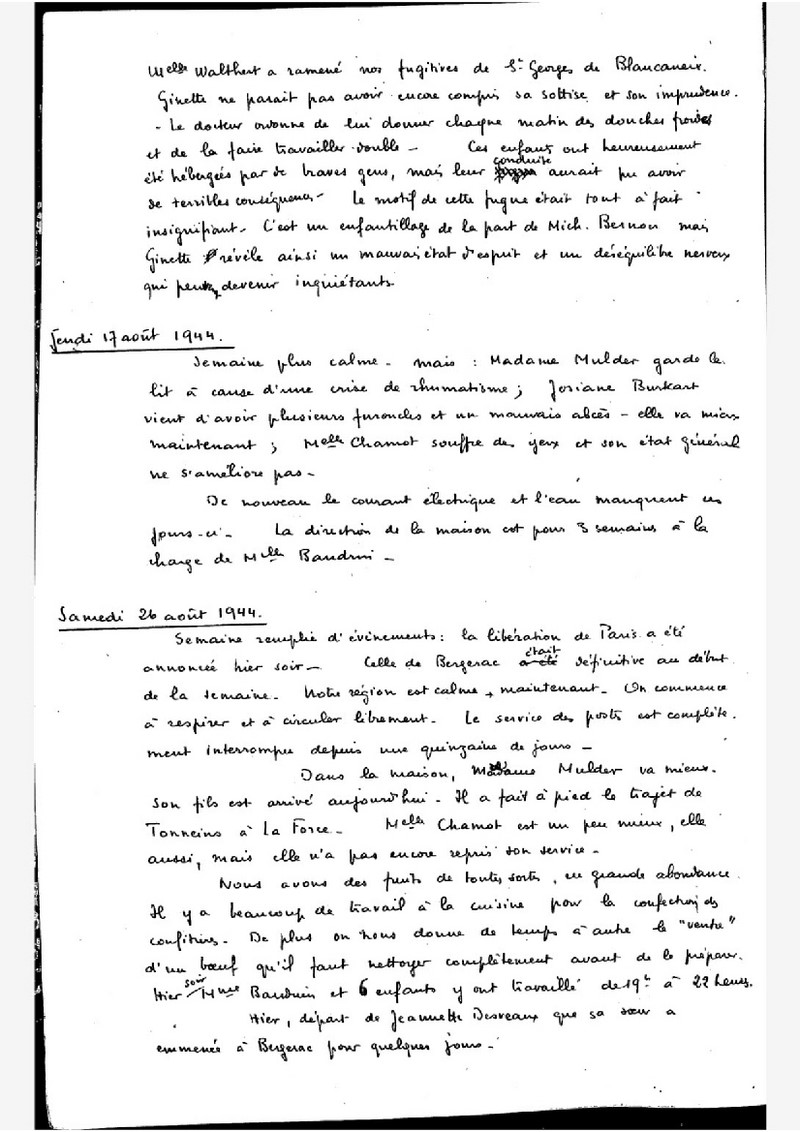 Melle Walther a ramené nos fugitives de St Georges de Blancaneix.
Ginette ne parait pas avoir encore compris sa sottise et son imprudence.
- Le docteur ordonne de lui donner chaque matin des douches froides
et de la faire travailler double - Ces enfants ont heureusement
été hébergées par de braves gens, mais leur conduite aurait pu avoir
de terribles conséquences - Le motif de cette fugue était tout à fait
insignifiant. C'est un enfantillage de la part de Mich. Bernon mais
Ginette révèle ainsi un mauvais état d'esprit et un déséquilibre nerveux
qui peut devenir inquiétants.
Jeudi 17 août 1944.
Semaine plus calme - mais : Madame Mulder garde le
lit à cause d'une crise de rhumatisme ; Josiane Burkart
vient d'avoir plusieurs furoncles et un mauvais abcès - elle va mieux
maintenant ; Melle Chamot souffre des yeux et son état général
ne s'améliore pas -
De nouveau le courant électrique et l'eau manquent ces
jours-ci - La direction de la maison est pour 3 semaines à la
charge de Melle Bauduin -
Samedi 26 août 1944.
Semaine remplie d'évènements : la libération de Paris a été
annoncée hier soir - Celle de Bergerac a été était définitive au début
de la semaine. Notre région est calme maintenant - On commence
à respirer et à circuler librement - Le service des postes est complète-
ment interrompu depuis une quinzaine de jours -
Dans la maison, Madame Mulder va mieux.
Son fils est arrivé aujourd'hui - Il a fait à pied le trajet de
Tonneins à La Force - Melle Chamot est un peu mieux, elle
aussi, mais elle n'a pas encore repris son service -
Nous avons des fruits de toutes sortes, en grande abondance.
Il y a beaucoup de travail à la cuisine pour la confection des
confitures - De plus on nous donne de temps à autre le "ventre"
d'un bœuf qu'il faut nettoyer complètement avant de le préparer.
Hier soir Mme Bauduin et 6 enfants y ont travaillé de 19h à 22 heures.
Hier, départ de Jeannette Desreaux que sa sœur a
emmenée à Bergerac pour quelques jours -